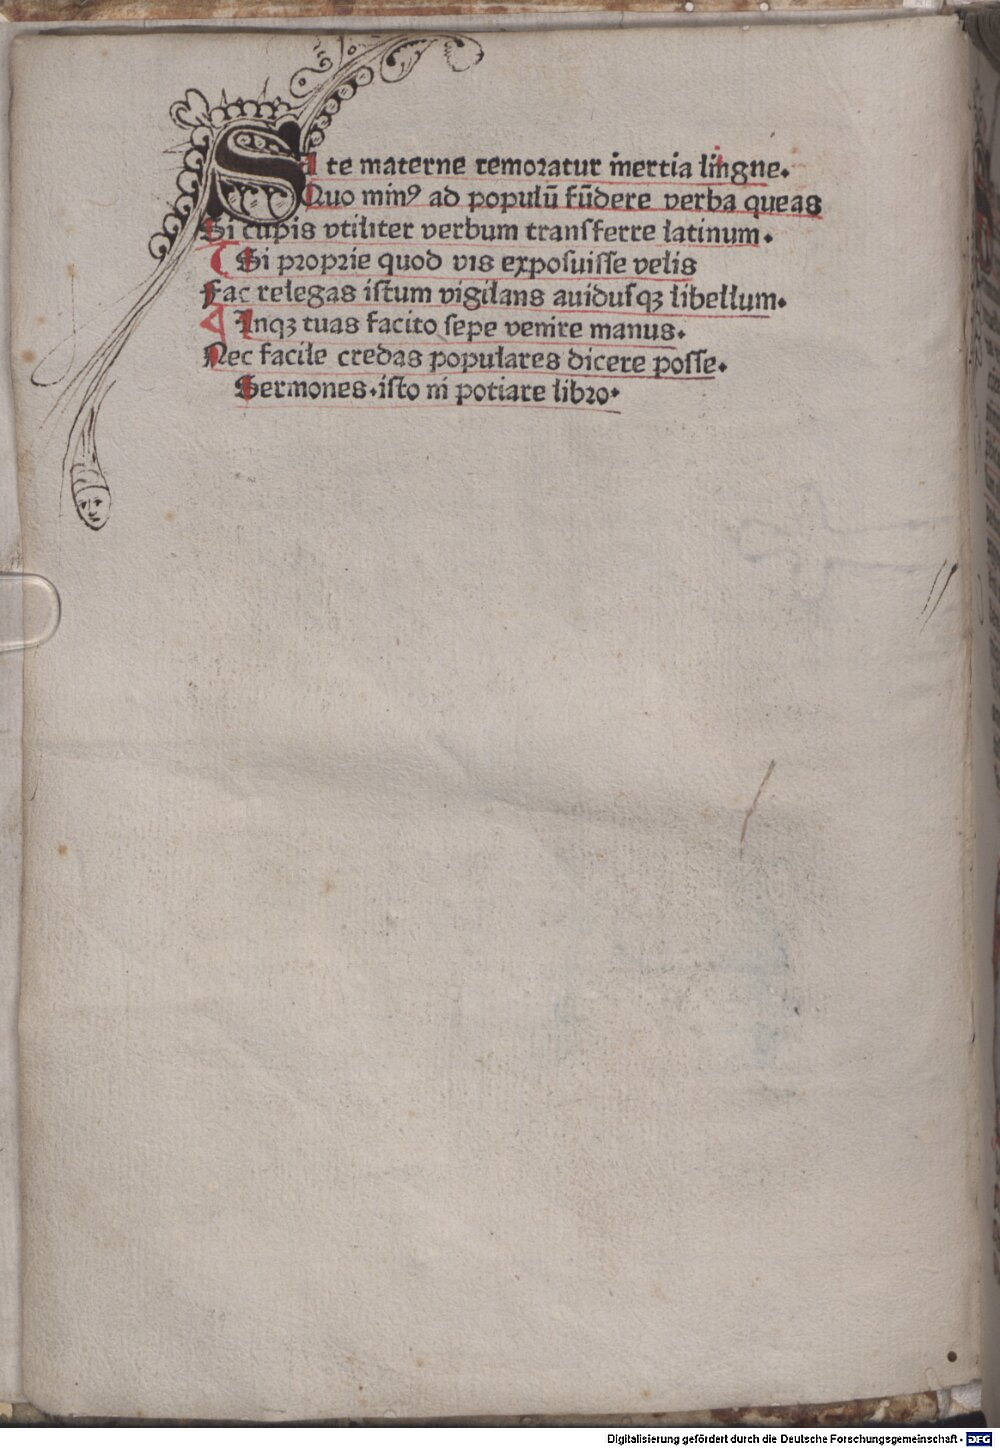 SI te materne remoratur inertia lingne.
Quo minꝰ ad populū fūdere verba queas
Si cupis vtiliter verbum transferre latinum.
Si proprie quod vis exposuisse velis
Fac relegas istum vigilans auidusqꝫ libellum.
Inqꝫ tuas facito sepe venire manus.
Nec facile credas populares dicere posse.
Sermones.isto ni potiare libro.
Digitalisierung gefördert durch die Deutsche Forschungsgemeinschaft - DFG